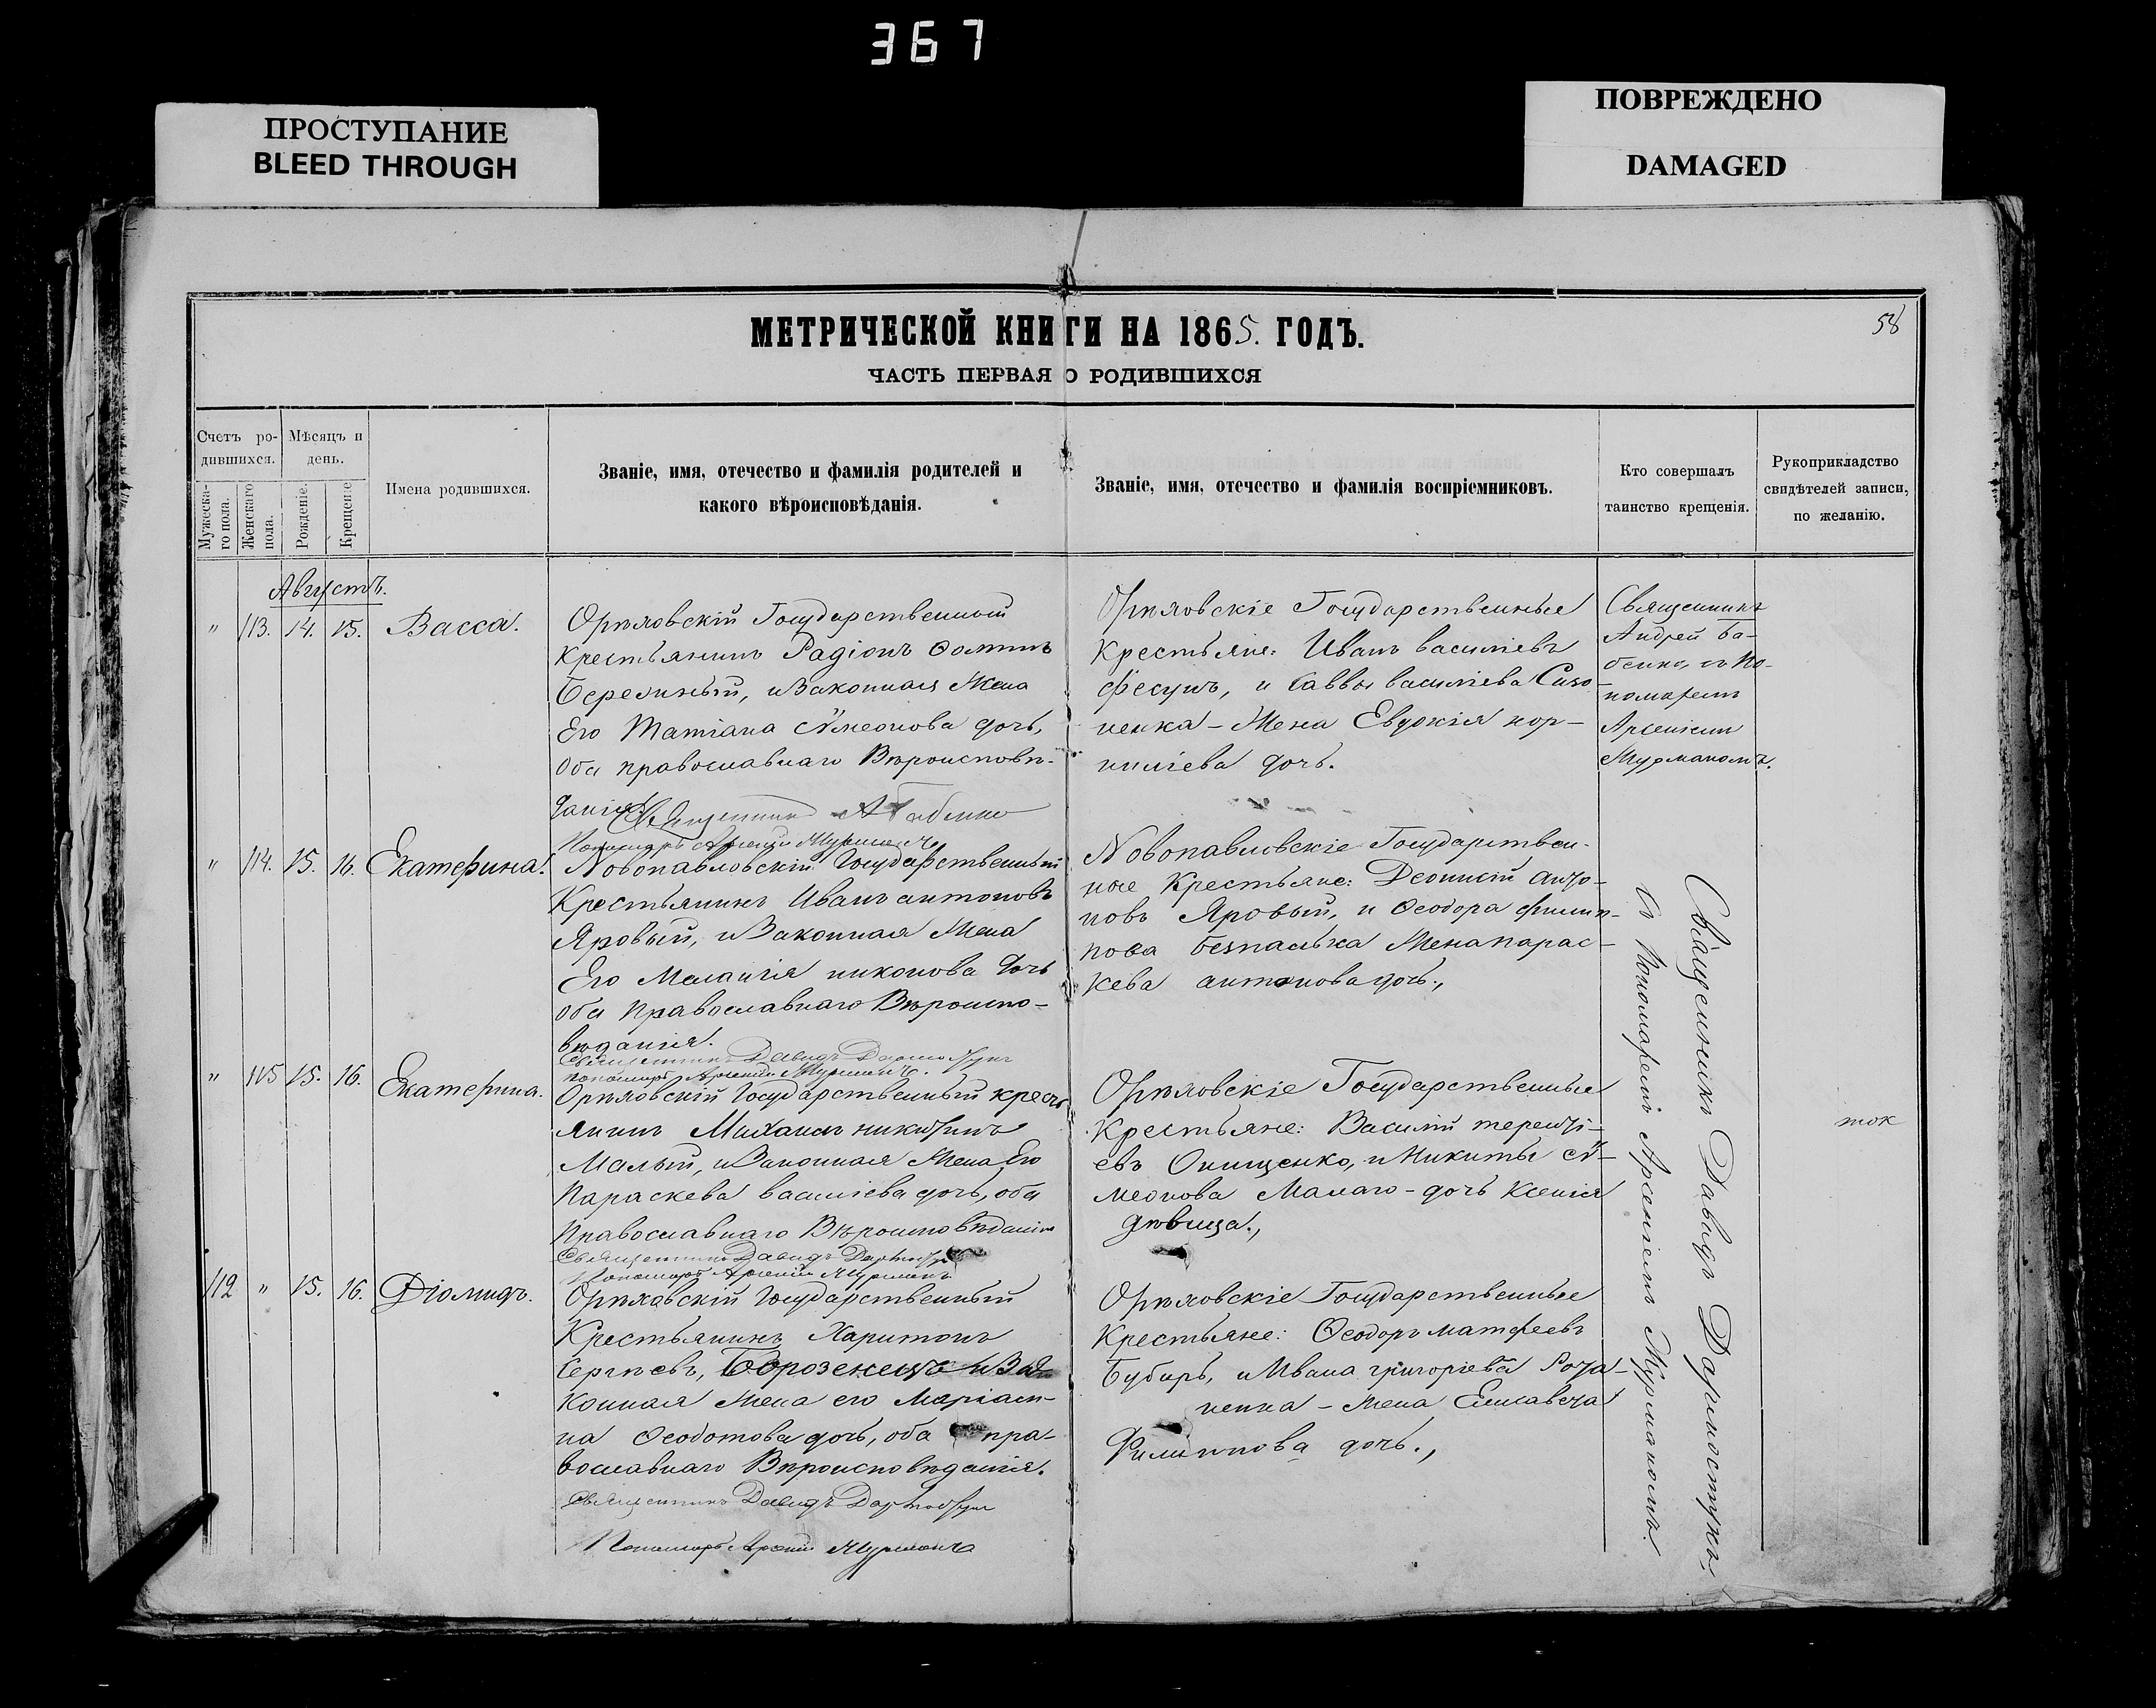 367
ПРОСТУПАНИЕ
BLEED THROUGH
ПОВРЕЖДЕНО
DAMAGED
58
МЕТРИЧЕСКОЙ КНИГИ НА 1865. ГОДЪ.
ЧАСТЬ ПЕРВАЯ О РОДИВШИХСЯ
Счетъ ро-
дившихся.
Мужеска-
го пола.
Женскаго
пола.
Мѣсяцъ и
день.
Рожденіе.
Крещеніе
Имена родившихся.
Званіе, имя, отечество и фамилія родителей и
какого вѣроисповѣданія.
Званіе, имя, отечество и фамилія воспріемниковъ.
Кто совершалъ
таинство крещенія.
Рукоприкладство
свидѣтелей записи,
по желанію.
Августъ.
" 113. 14. 15. Васса.
Орѣховскій Государственный
Крестьянинъ Радіонъ Ѳоминъ
и Законная Жена
Его Татіана Сѵмеонова дочь,
Оба православнаго Вѣроисповѣ-
данія. Священникъ А Бабенко
Пономарь Арсеній Мурманъ
Орѣховскіе Государственные
Крестьяне: Иванъ василіевъ
и Саввы василіева Сизо
ненка - Жена Евдокія кор-
ниліева дочь.
Священникъ
Андрей Ба-
бенко, съ По-
номаремъ
Арсеніемъ
Мурманомъ.
" 114. 15. 16. Екатерина.
Новопавловскій Государственный
Крестьянинъ Иванъ антоновъ
Яровый, и Законная Жена
Его Меланія никонова дочь
оба Православнаго Вѣроиспо-
вѣданія.
Священникъ Давидъ
пономарь Арсеній Мурманъ.
Новопавловскіе Государствен-
ные Крестьяне: Деонисій анто-
новъ Яровый, и Ѳеодора филип-
пова безпалька Жена парас-
кева антонова дочь.,
" 115 15. 16. Екатерина.
Орѣховскій Государственный крест
янинъ Михаилъ никитинъ
Малый, и Законная Жена Его
Параскева василіева дочь, оба
Православнаго Вѣроисповѣданія
Священникъ Давидъ
Пономарь Арсеній Мурманъ
Орѣховскіе Государственные
Крестьяне: Василій терентi-
евъ Онищенко, и Никиты сѵ-
меонова Малаго - дочь Ксенія
дѣвица.,
ток
112 " 15. 16. Діомидъ.
Орѣховскій Государственный
Крестьянинъ Харитонъ
Сергѣевъ, Борозенецъ и За
Конная Жена его Маріам-
на Ѳеодотова дочь, оба пра-
вославнаго Вѣроисповѣданія.
Священникъ Давидъ
Пономарь Арсеній Мурманъ
Орѣховскіе Государственные
Крестьяне: Ѳеодоръ матфеевъ
Бубырь, и Ивана григоріева
ненка - Жена Елисавета
Филиппова дочь.,
Священникъ Давидъ Дармостукъ,
съ Пономаремъ Арсеніемъ Мурманомъ.